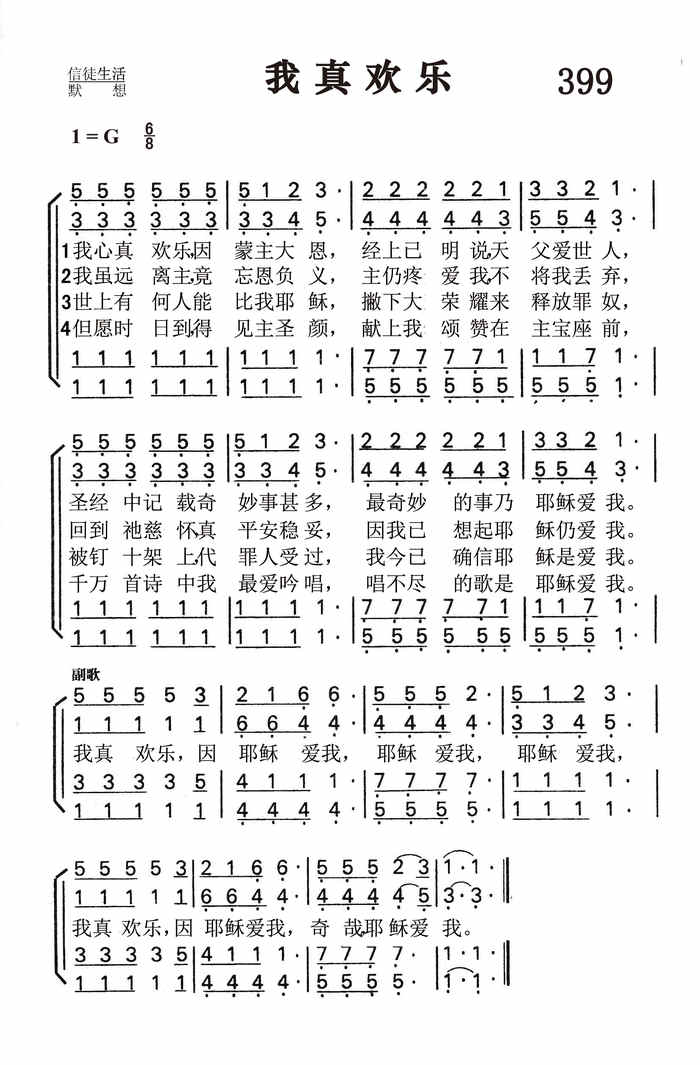 信徒生活
默 想
我真欢乐
399
1=G 6/8
5 5 5 5 5 5 | 5 1 2 3 · | 2 2 2 2 2 1 | 3 3 2 1 · |
3 3 3 3 3 3 | 3 3 4 5 · | 4 4 4 4 4 4 | 5 5 4 3 · |
1我心真 欢乐,因 蒙主大 恩, 经上已 明说,天 父爱世 人,
2我虽远 离主,竟 忘恩负 义, 主仍疼 爱我,不 将我丢 弃,
3世上有 何人能 比我耶 稣, 撇下大 荣耀来 释放罪 奴,
4但愿时 日到,得 见主圣 颜, 献上我 颂赞在 主宝座 前,
1 1 1 1 1 1 | 1 1 1 1 · | 7 7 7 7 7 7 | 1 1 1 1 · |
1 1 1 1 1 1 | 1 1 1 1 · | 5 5 5 5 5 5 | 5 5 5 1 · |
5 5 5 5 5 5 | 5 1 2 3 · | 2 2 2 2 2 1 | 3 3 2 1 · |
3 3 3 3 3 3 | 3 3 4 5 · | 4 4 4 4 4 3 | 5 5 4 3 · |
圣经 中记 载奇 妙事甚 多, 最奇妙 的事乃 耶稣爱 我。
回到 祂慈 怀,真 平安稳 妥, 因我已 想起耶 稣仍爱 我。
被钉 十架 上,代 罪人受 过, 我今已 确信耶 稣是爱 我。
千万 首诗 中我 最爱吟 唱, 唱不尽 的歌是 耶稣爱 我。
1 1 1 1 1 1 | 1 1 1 1 · | 7 7 7 7 7 1 | 1 1 7 1 · |
1 1 1 1 1 1 | 1 1 1 1 · | 5 5 5 5 5 5 | 5 5 5 1 · |
副歌
5 5 5 5 3 | 2 1 6 6 · | 5 5 5 2 · | 5 1 2 3 · |
1 1 1 1 1 | 6 6 4 4 · | 4 4 4 4 · | 3 3 4 5 · |
我真 欢乐,因 耶稣 爱我, 耶稣 爱我, 耶稣 爱我,
3 3 3 3 5 | 4 1 1 1 · | 7 7 7 7 · | 1 1 1 1 · |
1 1 1 1 1 | 4 4 4 4 · | 5 5 5 5 · | 1 1 1 1 · |
5 5 5 5 3 | 2 1 6 6 · | 5 5 5 2 3 | 1 · 1 · ‖
1 1 1 1 1 | 6 6 4 4 · | 4 4 4 4 5 | 3 · 3 · ‖
我真 欢乐,因 耶稣爱我, 奇 哉,耶稣爱 我。
3 3 3 3 5 | 4 1 1 1 · | 7 7 7 7 · | 1 · 1 · ‖
1 1 1 1 1 | 4 4 4 4 · | 5 5 5 5 · | 1 · 1 · ‖